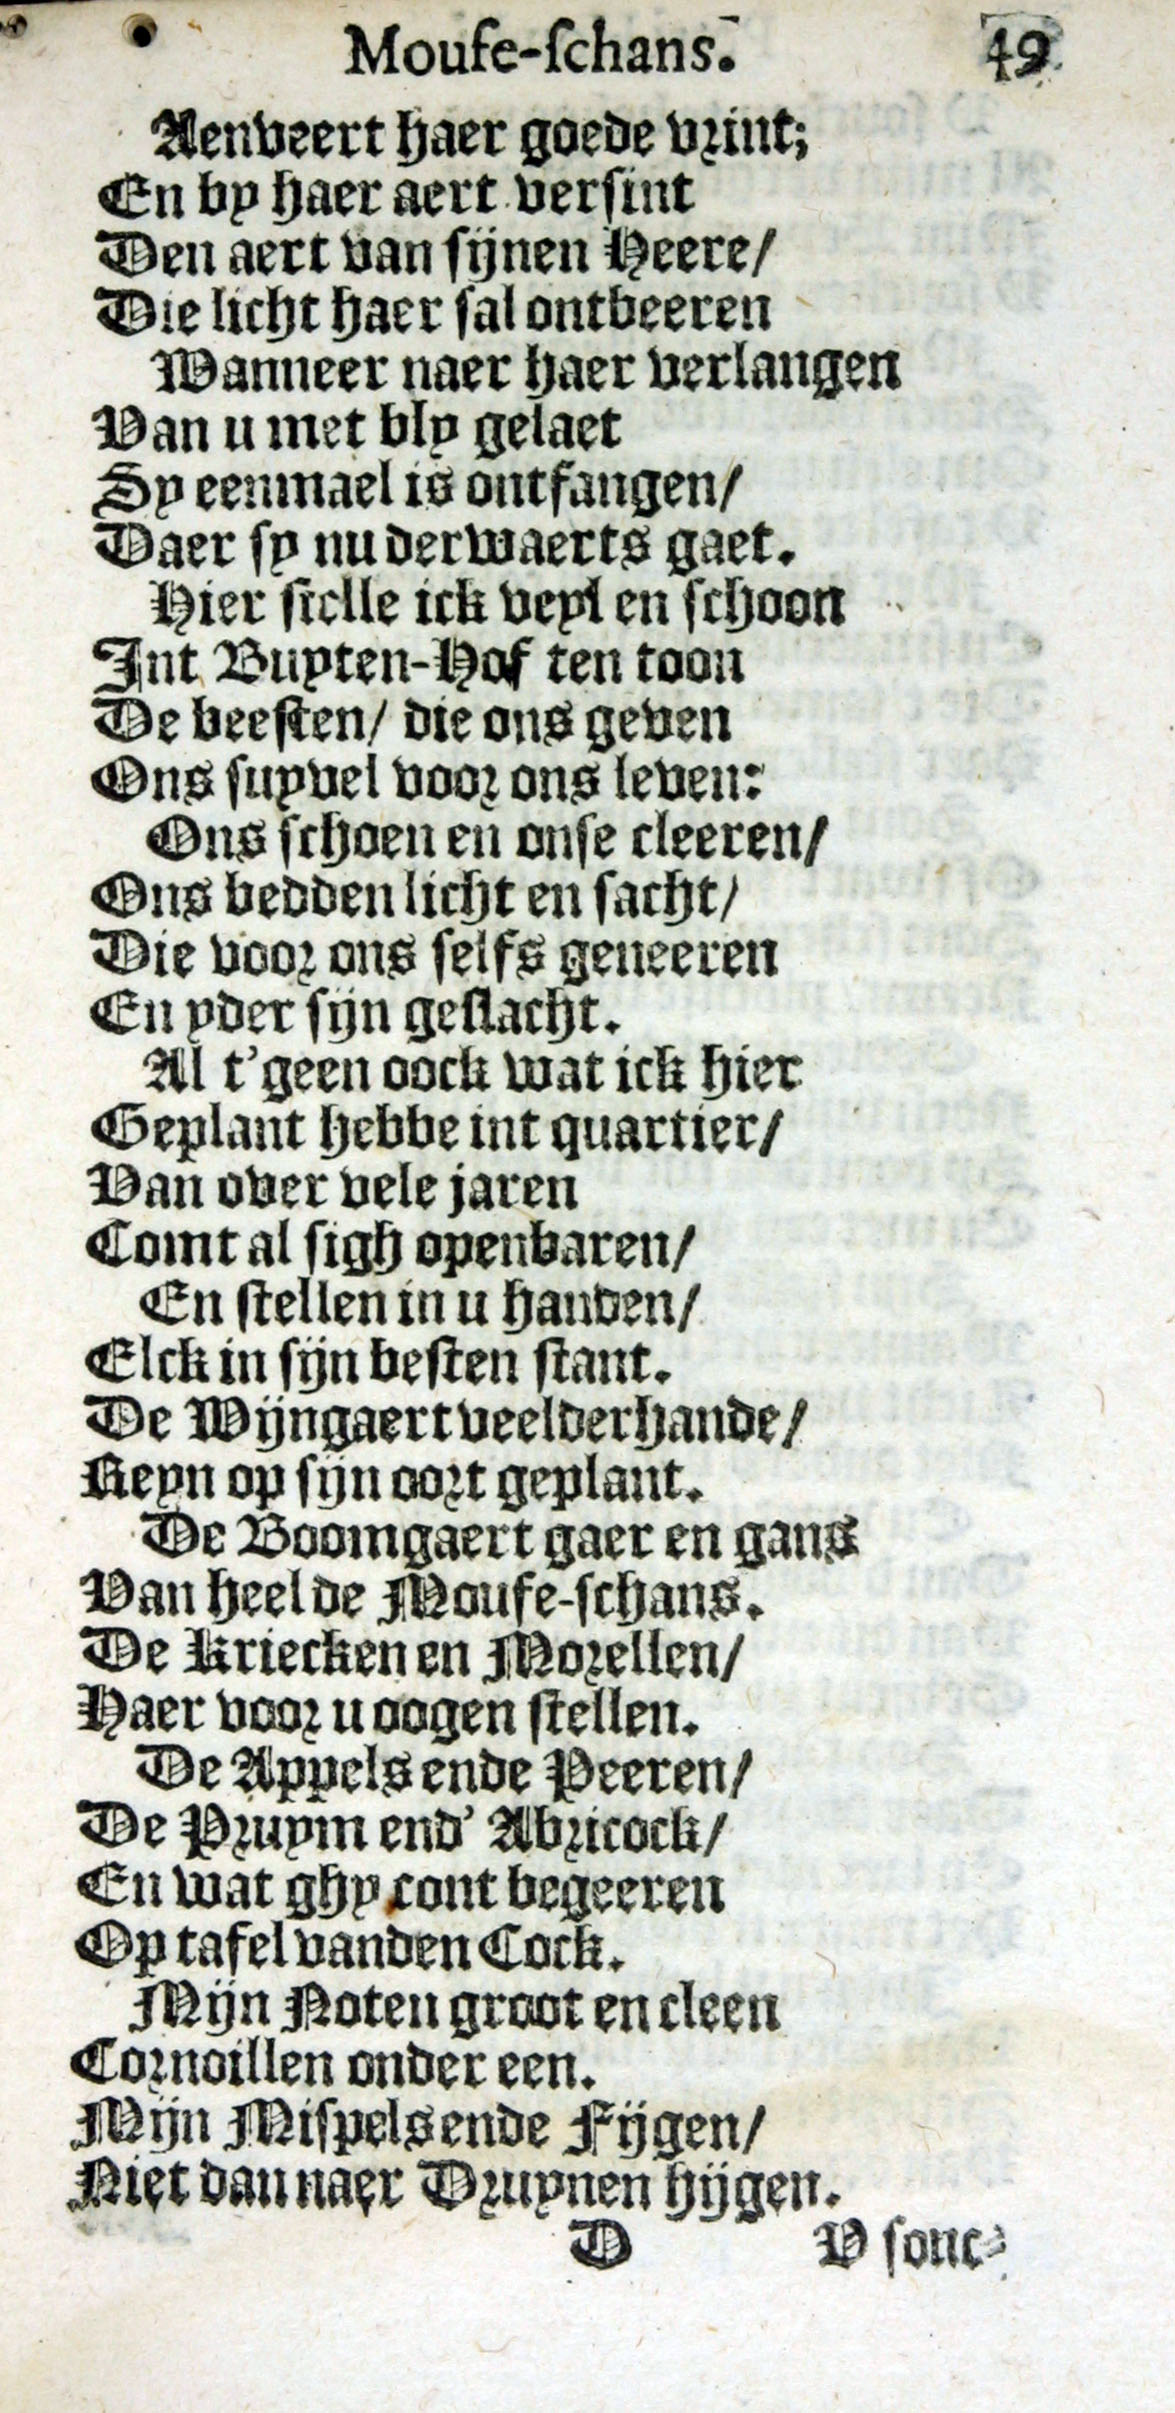 Moufe-schans. 49
Aenveert haer goede vrint;
En by haer aert versint
Den aert van sijnen Heere/
Die licht haer sal ontbeeren
Wanneer naer haer verlangen
Van u met bly gelaet
Sy eenmael is ontfangen/
Daer sy nu derwaerts gaet.
Hier stelle ick veyl en schoon
Int Buyten-Hof ten toon
De beesten/ die ons geven
Ons suyvel voor ons leven:
Ons schoen en onse cleeren/
Ons bedden licht en sacht/
Die voor ons selfs geneeren
En yder sijn geslacht.
Al t'geen oock wat ick hier
Geplant hebbe int quartier/
Van over vele jaren
Comt al sigh openbaren/
En stellen in u handen/
Elck in sijn besten stant.
De Wijngaert veelderhande/
Reyn op sijn oort geplant.
De Boomgaert gaer en gans
Van heel de Moufe-schans.
De Kriecken en Morellen/
Haer voor u oogen stellen.
De Appels ende Peeren/
De Pruym end' Abricock/
En wat ghy cont begeeren
Op tafel vanden Cock.
Mijn Noten groot en cleen
Cornoillen onder een.
Mijn Mispels ende Fijgen/
Niet dan naer Druynen hijgen.
D V sonc-